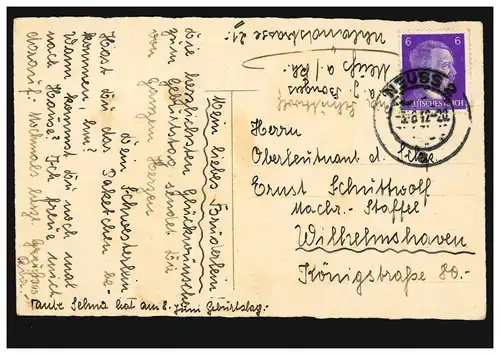 Mein liebes Brüderlein
Die herzlichsten Glückwünsche
zum Geburtstag sendet Dir
von ganzem Herzen
Dein Schwesterlein
Hast Du das Paketchen be-
kommen, hm?
Wann kommst Du noch mal
nach Hause? Ich freue mich
darauf. Nochmals herzl.
Tante Selma hat am 8. Juni Geburtstag.-
Neuß a./Rh.
6 6
DEUTSCHES REICH
NEUSS 2
Herrn
Oberleutnant d.
Ernst Schuttwolf
Nachr.- Staffel
Wilhelmshaven
Königstraße 80.-